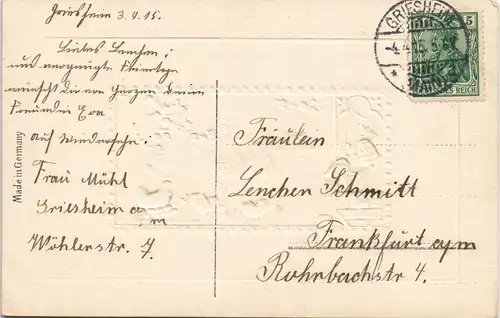 Griesheim 3.4.15.
Liebes Lenchen!
und vergnügte Feiertage
wünscht dir von Herzen deine
Freundin Eva
auf Wiedersehn!
Frau Mühl
Griesheim a/m
Wöhlerstr. 7
Made in Germany
GRIESHEIM
5
S REICH
Fräulein
Lenchen Schmitt
Frankfurt a/m
Rohrbachstr. 4.